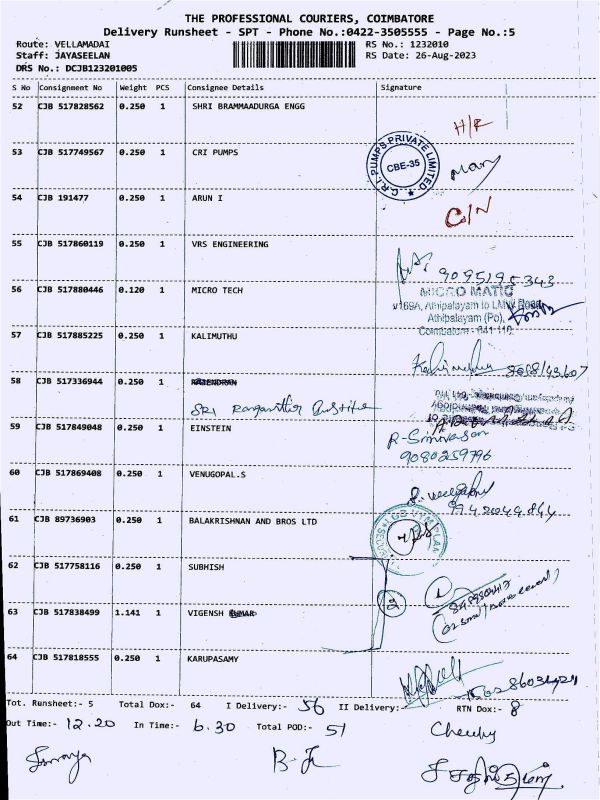 THE PROFESSIONAL COURIERS, COIMBATORE
Delivery Runsheet - SPT - Phone No.:0422-3505555 - Page No.:5
Route: VELLAMADAI RS No.: 1232010
Staff: JAYASEELAN RS Date: 26-Aug-2023
DRS No.: DCJB123201005
S No Consignment No Weight PCS Consignee Details Signature
52 CJB 517828562 0.250 1 SHRI BRAMMAADURGA ENGG
H/R
53 CJB 517749567 0.250 1 CRI PUMPS
C.R.I. PUMPS PRIVATE LIMITED
CBE-35
54 CJB 191477 0.250 1 ARUN I
C/N
55 CJB 517860119 0.250 1 VRS ENGINEERING
9095195343
56 CJB 517880446 0.120 1 MICRO TECH
MICRO MATIC
Athipalayam to LMW Road,
Athipalayam (Po),
Coimbatore - 641 110.
57 CJB 517885225 0.250 1 KALIMUTHU
58 CJB 517336944 0.250 1 RAJENDRAN
SRI Ranganathar
59 CJB 517849048 0.250 1 EINSTEIN
R-Srinivasan
9080259796
60 CJB 517869408 0.250 1 VENUGOPAL.S
61 CJB 89736903 0.250 1 BALAKRISHNAN AND BROS LTD
62 CJB 517758116 0.250 1 SUBHISH
2
63 CJB 517838499 1.141 1 VIGENSH
64 CJB 517818555 0.250 1 KARUPASAMY
Tot. Runsheet:- 5 Total Dox:- 64 I Delivery:- 56 II Delivery:- RTN Dox:- 8
Out Time:- 12.20 In Time:- 6.30 Total POD:- 51